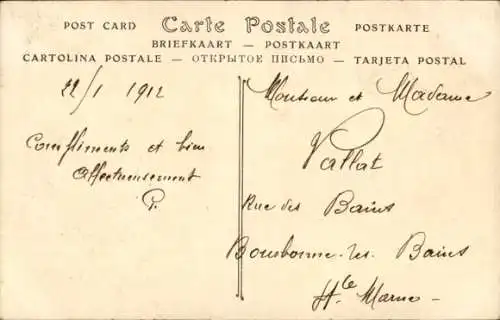 POST CARD Carte Postale POSTKARTE
BRIEFKAART — POSTKAART
CARTOLINA POSTALE — ОТКРЫТОЕ ПИСЬМО — TARJETA POSTAL
22/1 1912
Compliments et bien
affectueusement
P.
Monsieur et Madame
Vallat
Rue des Bains
Bourbonne-les-Bains
Hte Marne